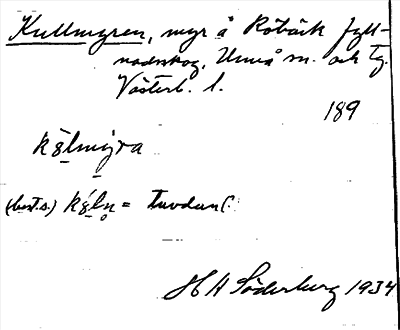 Kullmyren, myr å Röbäck fyll-
nadsskog, Umeå sn. och tg.
Västerb. l.
189
kålmyra
(best. s.) kåln = tuvdun(
H A Söderburg 1934